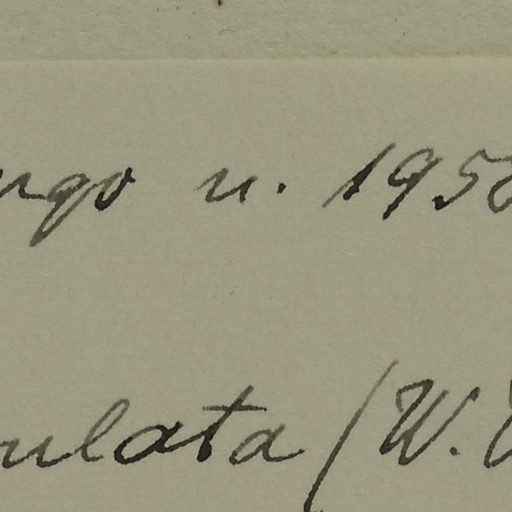 ngo n. 195
ulata (W.